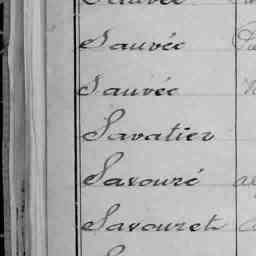 Sauvée
Sauvée
Savatier
Savouré
Savouret